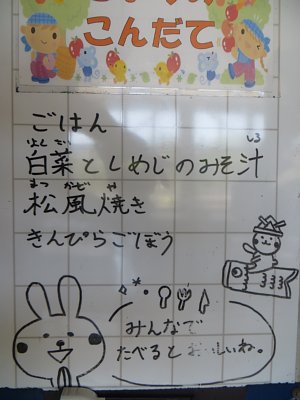 こんだて
ごはん
白菜としめじのみそ汁
松風焼き
きんぴらごぼう
みんなで
たべると おいしいね。